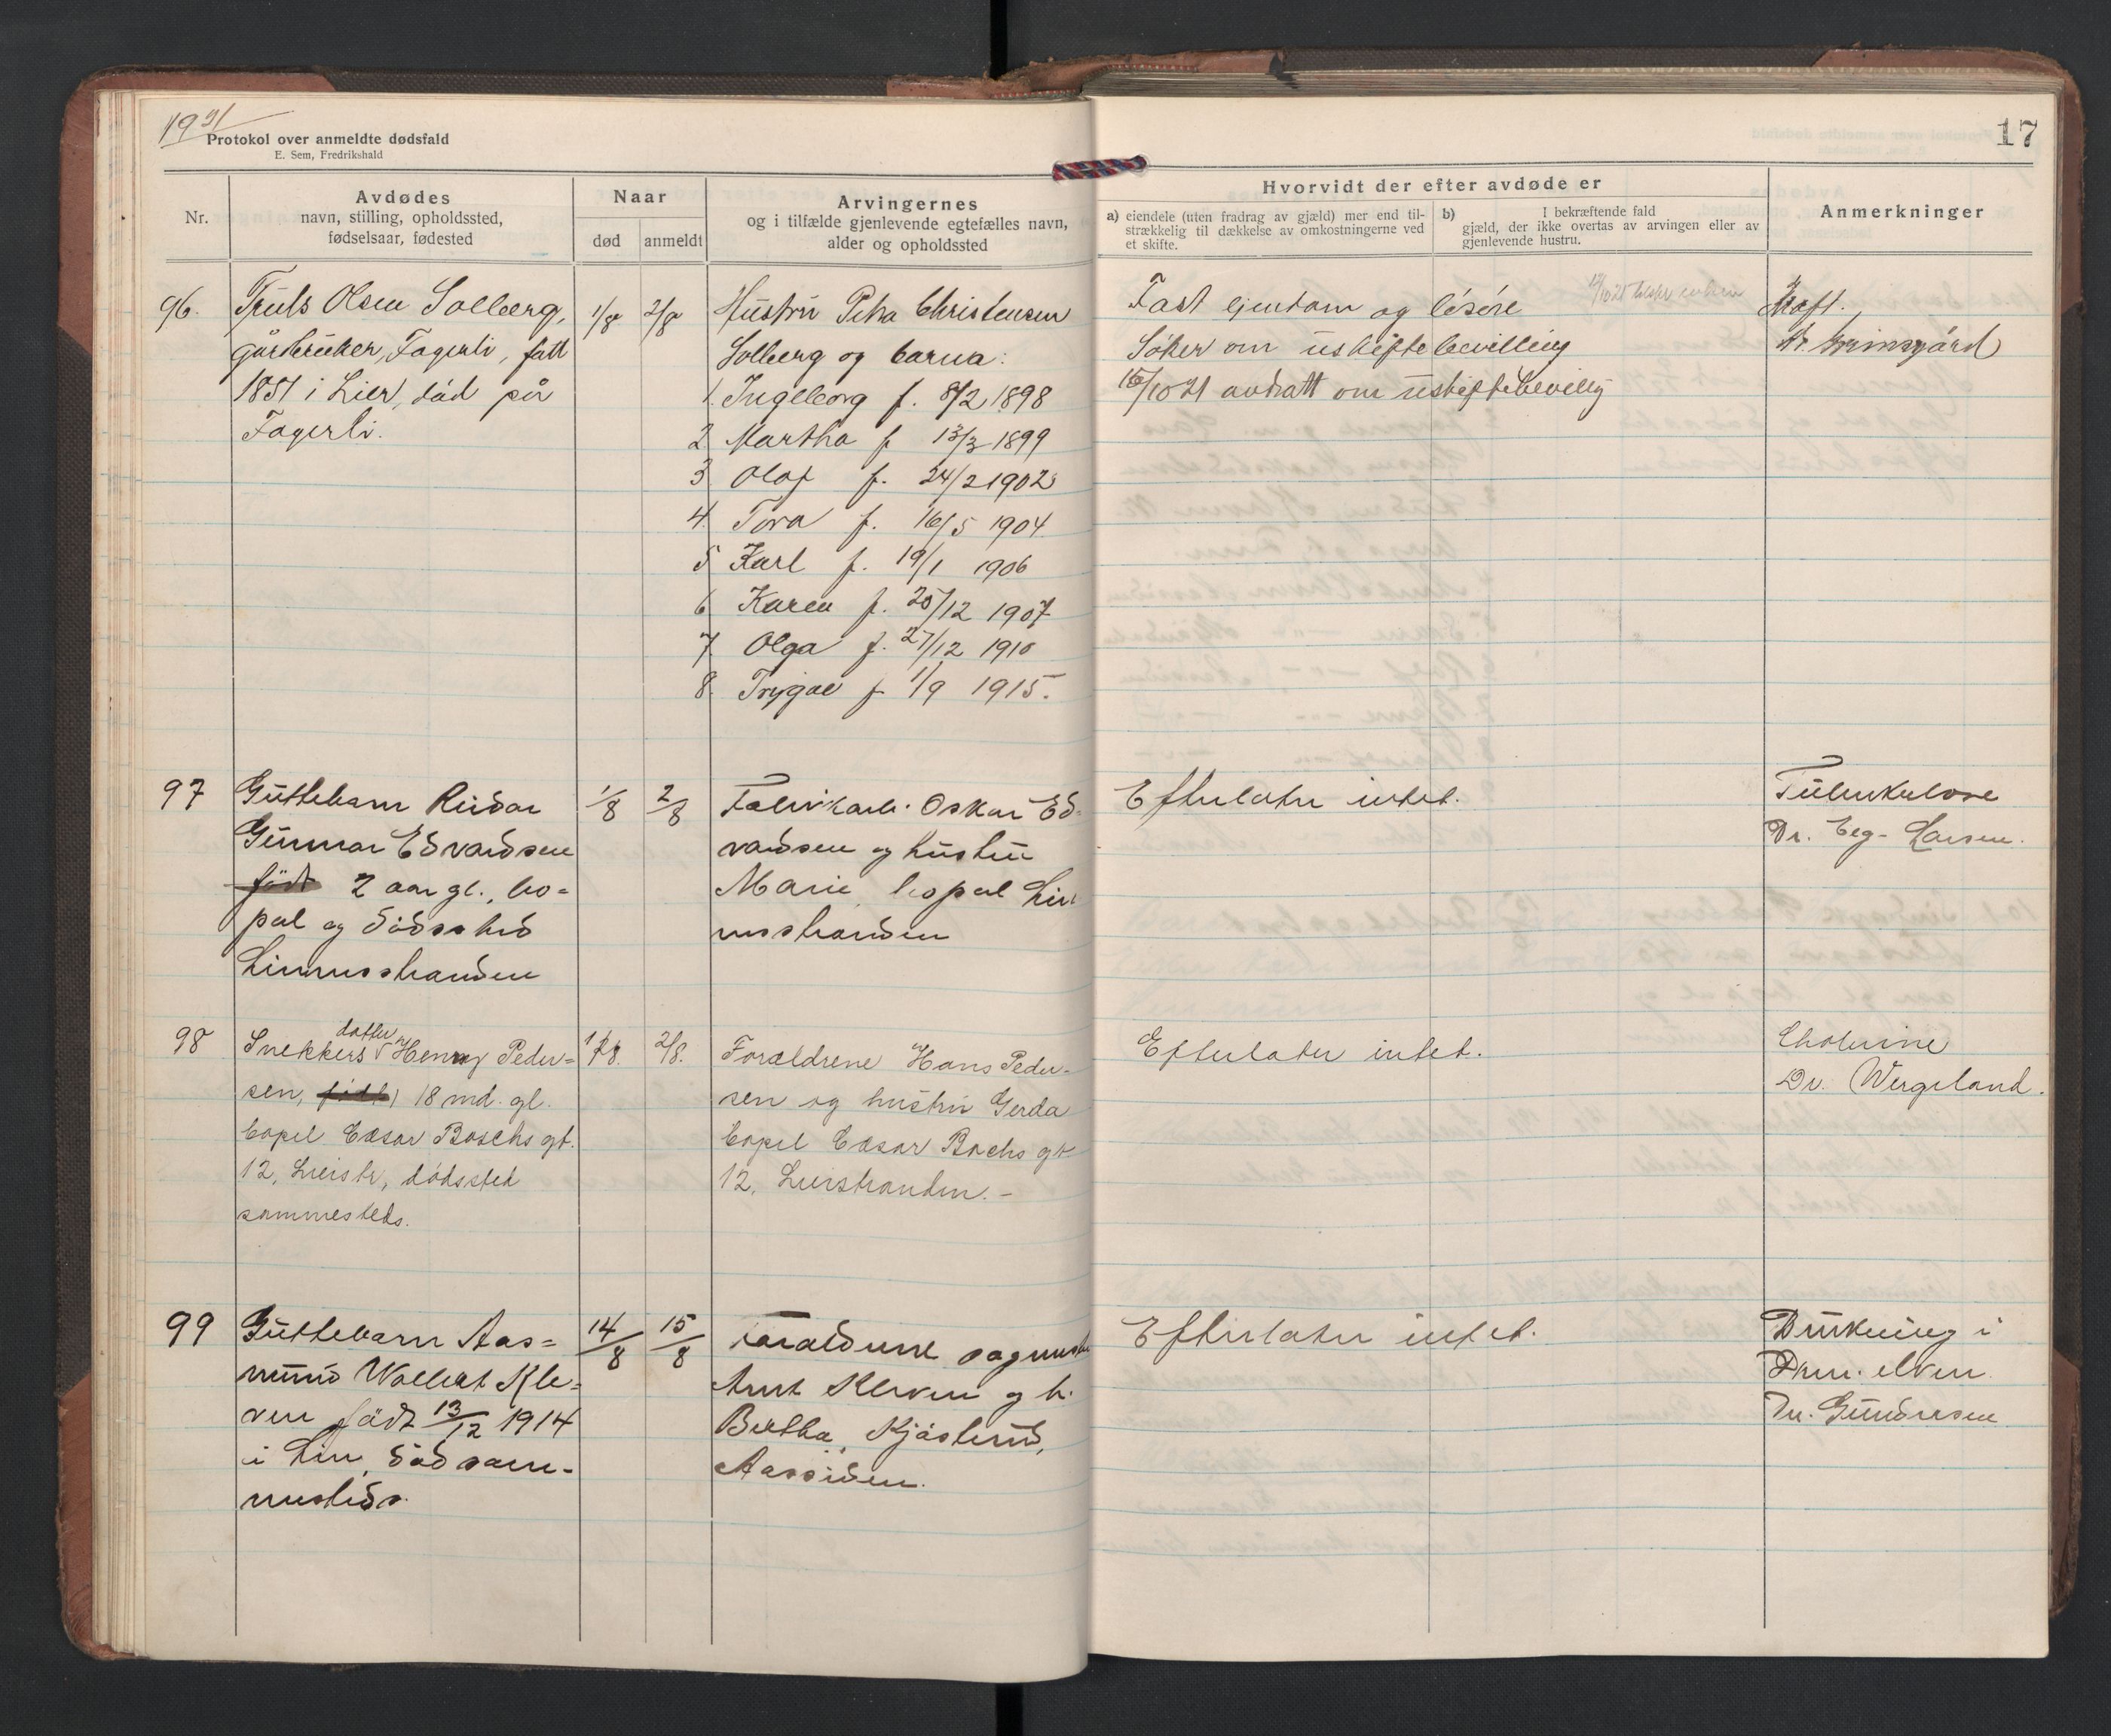 1921
Protokol over anmeldte dødsfald
E. Sem, Fredrikshald
17
Nr.
Avdødes
navn, stilling, opholdssted,
fødselsaar, fødested
Naar
død
anmeldt
Arvingernes
og i tilfælde gjenlevende egtefælles navn,
alder og opholdssted
Hvorvidt der efter avdøde er
a) eiendele (uten fradrag av gjæld) mer end til-
strækkelig til dækkelse av omkostningerne ved
et skifte.
b) I bekræftende fald
gjæld, der ikke overtas av arvingen eller av
gjenlevende hustru.
Anmerkninger
96.
Truls Olsen Solberg,
gårbruker, Fagerli, født
1851 i Lier, død på
Fagerli.
1/8
2/8
Hustru Petra Christensen
Solberg og barna:
1. Ingeborg f. 8/2 1898
2 Martha f 13/3 1899
3 Olaf f. 24/2 1902
4. Tora f. 16/5 1904
5 Karl f. 19/1 1906
6 Karen f. 25/12 1907
7. Olga f. 27/12 1910
8. Trygve f 1/9 1915.
Fast ejendom og løsøre
Søker om uskiftebevilling
15/10 21 avdratt om uskiftebevillg
Kræft.
Dr. Grimsgård
97
Guttebarn Reidar
Gunnar Edvardsen
født 2 aar gl., bo-
pæl og dødssted
Lierstranden
1/8
2/8
Fabrikarb. Oskar Ed-
vardsen og hustru
Marie, bopæl Lier
stranden
Efterlater intet.
Tuberkulose
Dr. Eeg-Larsen.
98
Snekkers datter Henny Peder-
sen, født 18 md. gl.
bopel Cæsar Boschs gt.
12, Lierstr, dødssted
sammesteds.
1/8.
2/8.
Forældrene Hans Peder-
sen og hustru Gerda
bopel Cæsar Bochs gt
12, Lierstranden. -
Efterlater intet.
Cholerine
Dr. Wergeland.
99
Guttebarn Aas-
mund Wollert Kle-
ven født 13/12 1914
i Lier, død sam-
mesteds.
14/8
15/8
Forældrene sagmester
Arnt Kleven og h.
Bertha, Kjøsterud,
Aassiden.
Efterlater intet.
Drukning i
Drm. elven
Dr. Gundersen